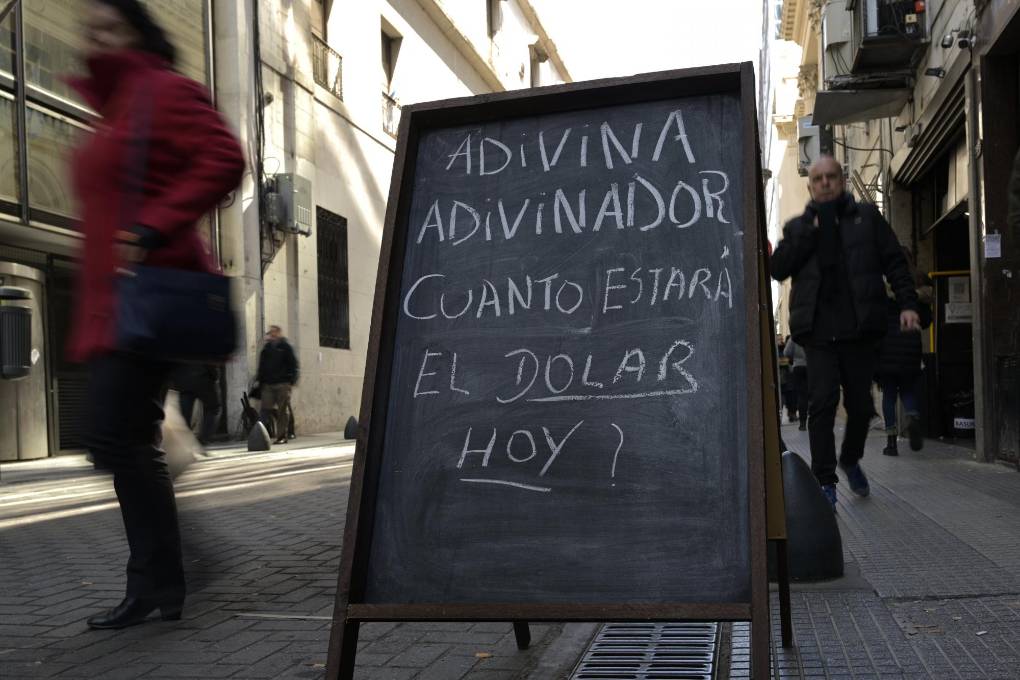 ADiViNA
ADIViNADOR
CUANTO ESTARÁ
EL DOLAR
HOY?